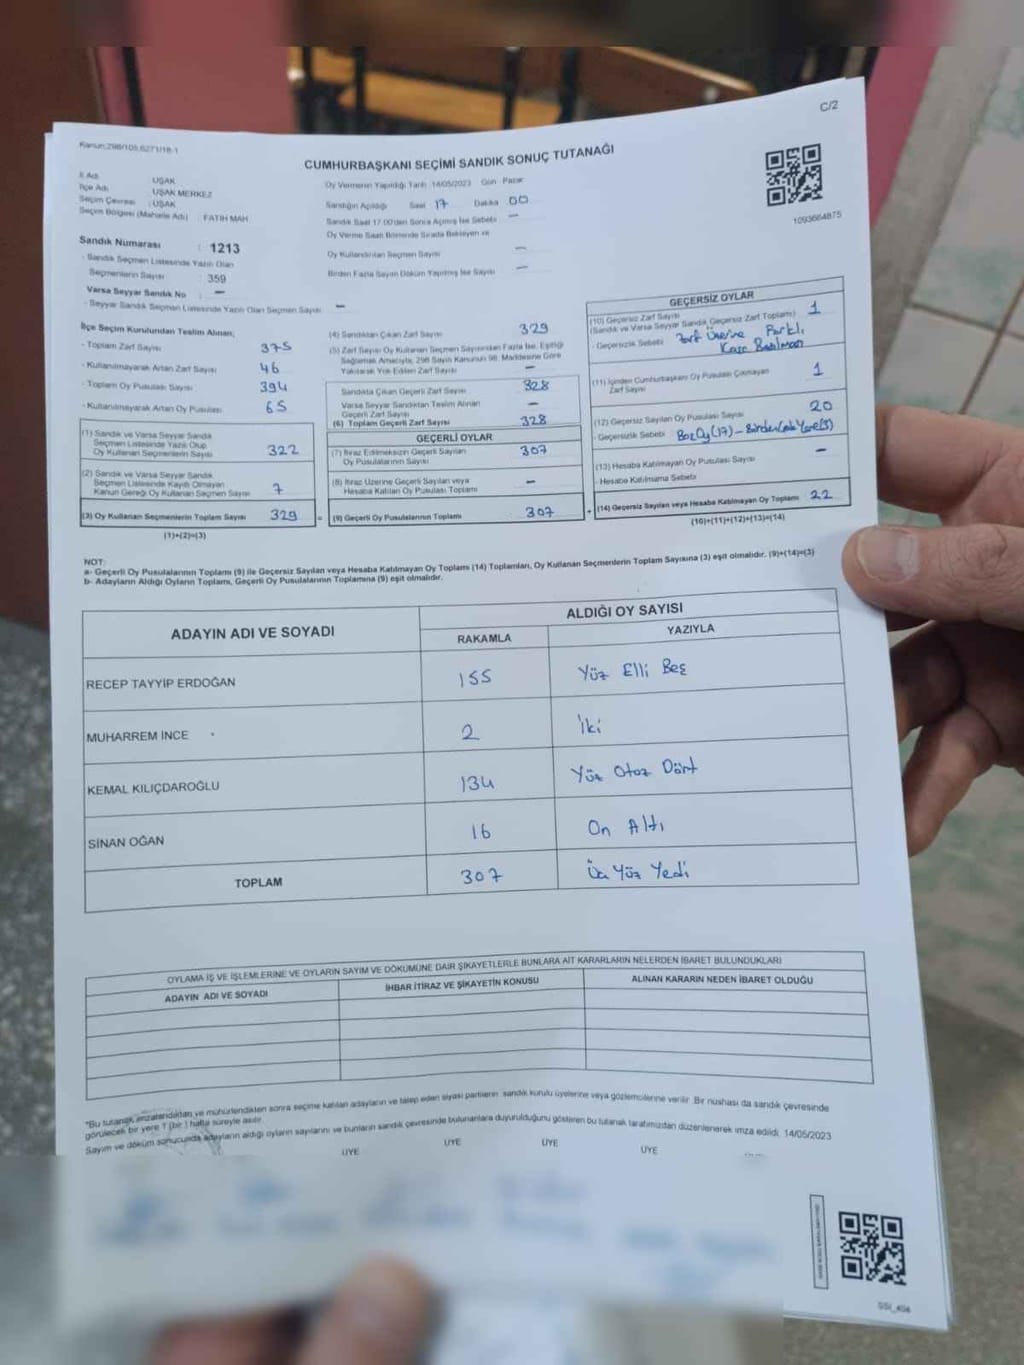 C/2
Kanun:298/105,6271/18-1
CUMHURBAŞKANI SEÇİMİ SANDIK SONUÇ TUTANAĞI
İl Adı : UŞAK
İlçe Adı : UŞAK MERKEZ
Seçim Çevresi : UŞAK
Seçim Bölgesi (Mahalle Adı) : FATİH MAH
Sandık Numarası : 1213
- Sandık Seçmen Listesinde Yazılı Olan
Seçmenlerin Sayısı : 359
Varsa Seyyar Sandık No : —
- Seyyar Sandık Seçmen Listesinde Yazılı Olan Seçmen Sayısı —
Oy Vermenin Yapıldığı Tarih 14/05/2023 Gün Pazar
Sandığın Açıldığı Saat 17 Dakika 00
Sandık Saat 17.00'den Sonra Açılmış İse Sebebi —
Oy Verme Saati Bitiminde Sırada Bekleyen ve
Oy Kullandırılan Seçmen Sayısı —
Birden Fazla Sayım Döküm Yapılmış İse Sayısı —
1093664875
İlçe Seçim Kurulundan Teslim Alınan;
- Toplam Zarf Sayısı 375
- Kullanılmayarak Artan Zarf Sayısı 46
- Toplam Oy Pusulası Sayısı 394
- Kullanılmayarak Artan Oy Pusulası 65
(1) Sandık ve Varsa Seyyar Sandık
Seçmen Listesinde Yazılı Olup
Oy Kullanan Seçmenlerin Sayısı 322
(2) Sandık ve Varsa Seyyar Sandık
Seçmen Listesinde Kayıtlı Olmayan
Kanun Gereği Oy Kullanan Seçmen Sayısı 7
(3) Oy Kullanan Seçmenlerin Toplam Sayısı 329
(1)+(2)=(3)
(4) Sandıktan Çıkan Zarf Sayısı 329
(5) Zarf Sayısı Oy Kullanan Seçmen Sayısından Fazla İse, Eşitliği
Sağlamak Amacıyla, 298 Sayılı Kanunun 98. Maddesine Göre
Yakılarak Yok Edilen Zarf Sayısı —
Sandıkta Çıkan Geçerli Zarf Sayısı 328
Varsa Seyyar Sandıktan Teslim Alınan
Geçerli Zarf Sayısı —
(6) Toplam Geçerli Zarf Sayısı 328
GEÇERLİ OYLAR
(7) İtiraz Edilmeksizin Geçerli Sayılan
Oy Pusulalarının Sayısı 307
(8) İtiraz Üzerine Geçerli Sayılan veya
Hesaba Katılan Oy Pusulaları Toplamı —
= (9) Geçerli Oy Pusulalarının Toplamı 307
GEÇERSİZ OYLAR
(10) Geçersiz Zarf Sayısı
(Sandık ve Varsa Seyyar Sandık Geçersiz Zarf Toplamı) 1
- Geçersizlik Sebebi Zarf Üzerine Farklı
Kaşe Basılması
(11) İçinden Cumhurbaşkanı Oy Pusulası Çıkmayan
Zarf Sayısı 1
(12) Geçersiz Sayılan Oy Pusulası Sayısı 20
- Geçersizlik Sebebi Boz Oy (17) – Birden Çok Yere (3)
(13) Hesaba Katılmayan Oy Pusulası Sayısı —
- Hesaba Katılmama Sebebi
+ (14) Geçersiz Sayılan veya Hesaba Katılmayan Oy Toplamı 22
(10)+(11)+(12)+(13)=(14)
NOT:
a- Geçerli Oy Pusulalarının Toplamı (9) ile Geçersiz Sayılan veya Hesaba Katılmayan Oy Toplamı (14) Toplamları, Oy Kullanan Seçmenlerin Toplam Sayısına (3) eşit olmalıdır. (9)+(14)=(3)
b- Adayların Aldığı Oyların Toplamı, Geçerli Oy Pusulalarının Toplamına (9) eşit olmalıdır.
ADAYIN ADI VE SOYADI
ALDIĞI OY SAYISI
RAKAMLA YAZIYLA
RECEP TAYYİP ERDOĞAN 155 Yüz Elli Beş
MUHARREM İNCE 2 İki
KEMAL KILIÇDAROĞLU 134 Yüz Otuz Dört
SİNAN OĞAN 16 On Altı
TOPLAM 307 Üç Yüz Yedi
OYLAMA İŞ VE İŞLEMLERİNE VE OYLARIN SAYIM VE DÖKÜMÜNE DAİR ŞİKAYETLERLE BUNLARA AİT KARARLARIN NELERDEN İBARET BULUNDUKLARI
ADAYIN ADI VE SOYADI İHBAR İTİRAZ VE ŞİKAYETİN KONUSU ALINAN KARARIN NEDEN İBARET OLDUĞU
"Bu tutanak imzalandıktan ve mühürlendikten sonra seçime katılan adayların ve talep eden siyasi partilerin sandık kurulu üyelerine veya gözlemcilerine verilir. Bir nüshası da sandık çevresinde
görülecek bir yere 1 (bir ) hafta süreyle asılır.
Sayım ve döküm sonucunda adayların aldığı oyların sayılarını ve bunların sandık çevresinde bulunanlara duyurulduğunu gösteren bu tutanak tarafımızdan düzenlenerek imza edildi. 14/05/2023
ÜYE ÜYE ÜYE ÜYE